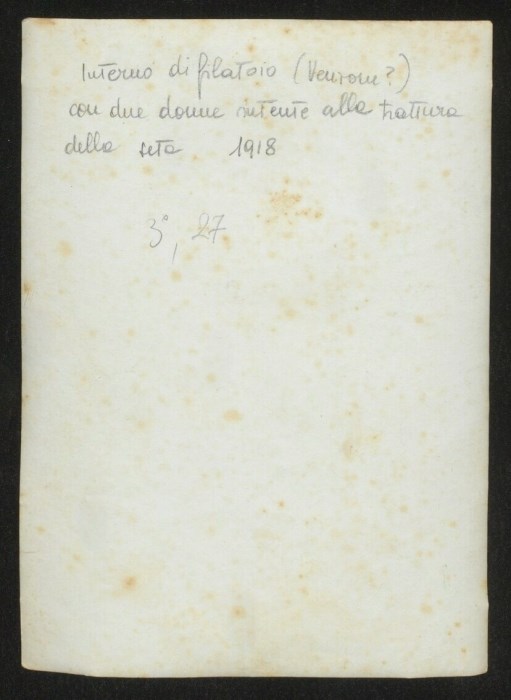 Interno di filatoio (Venrom?)
con due donne intente alla trattura
della seta 1918
3°, 27